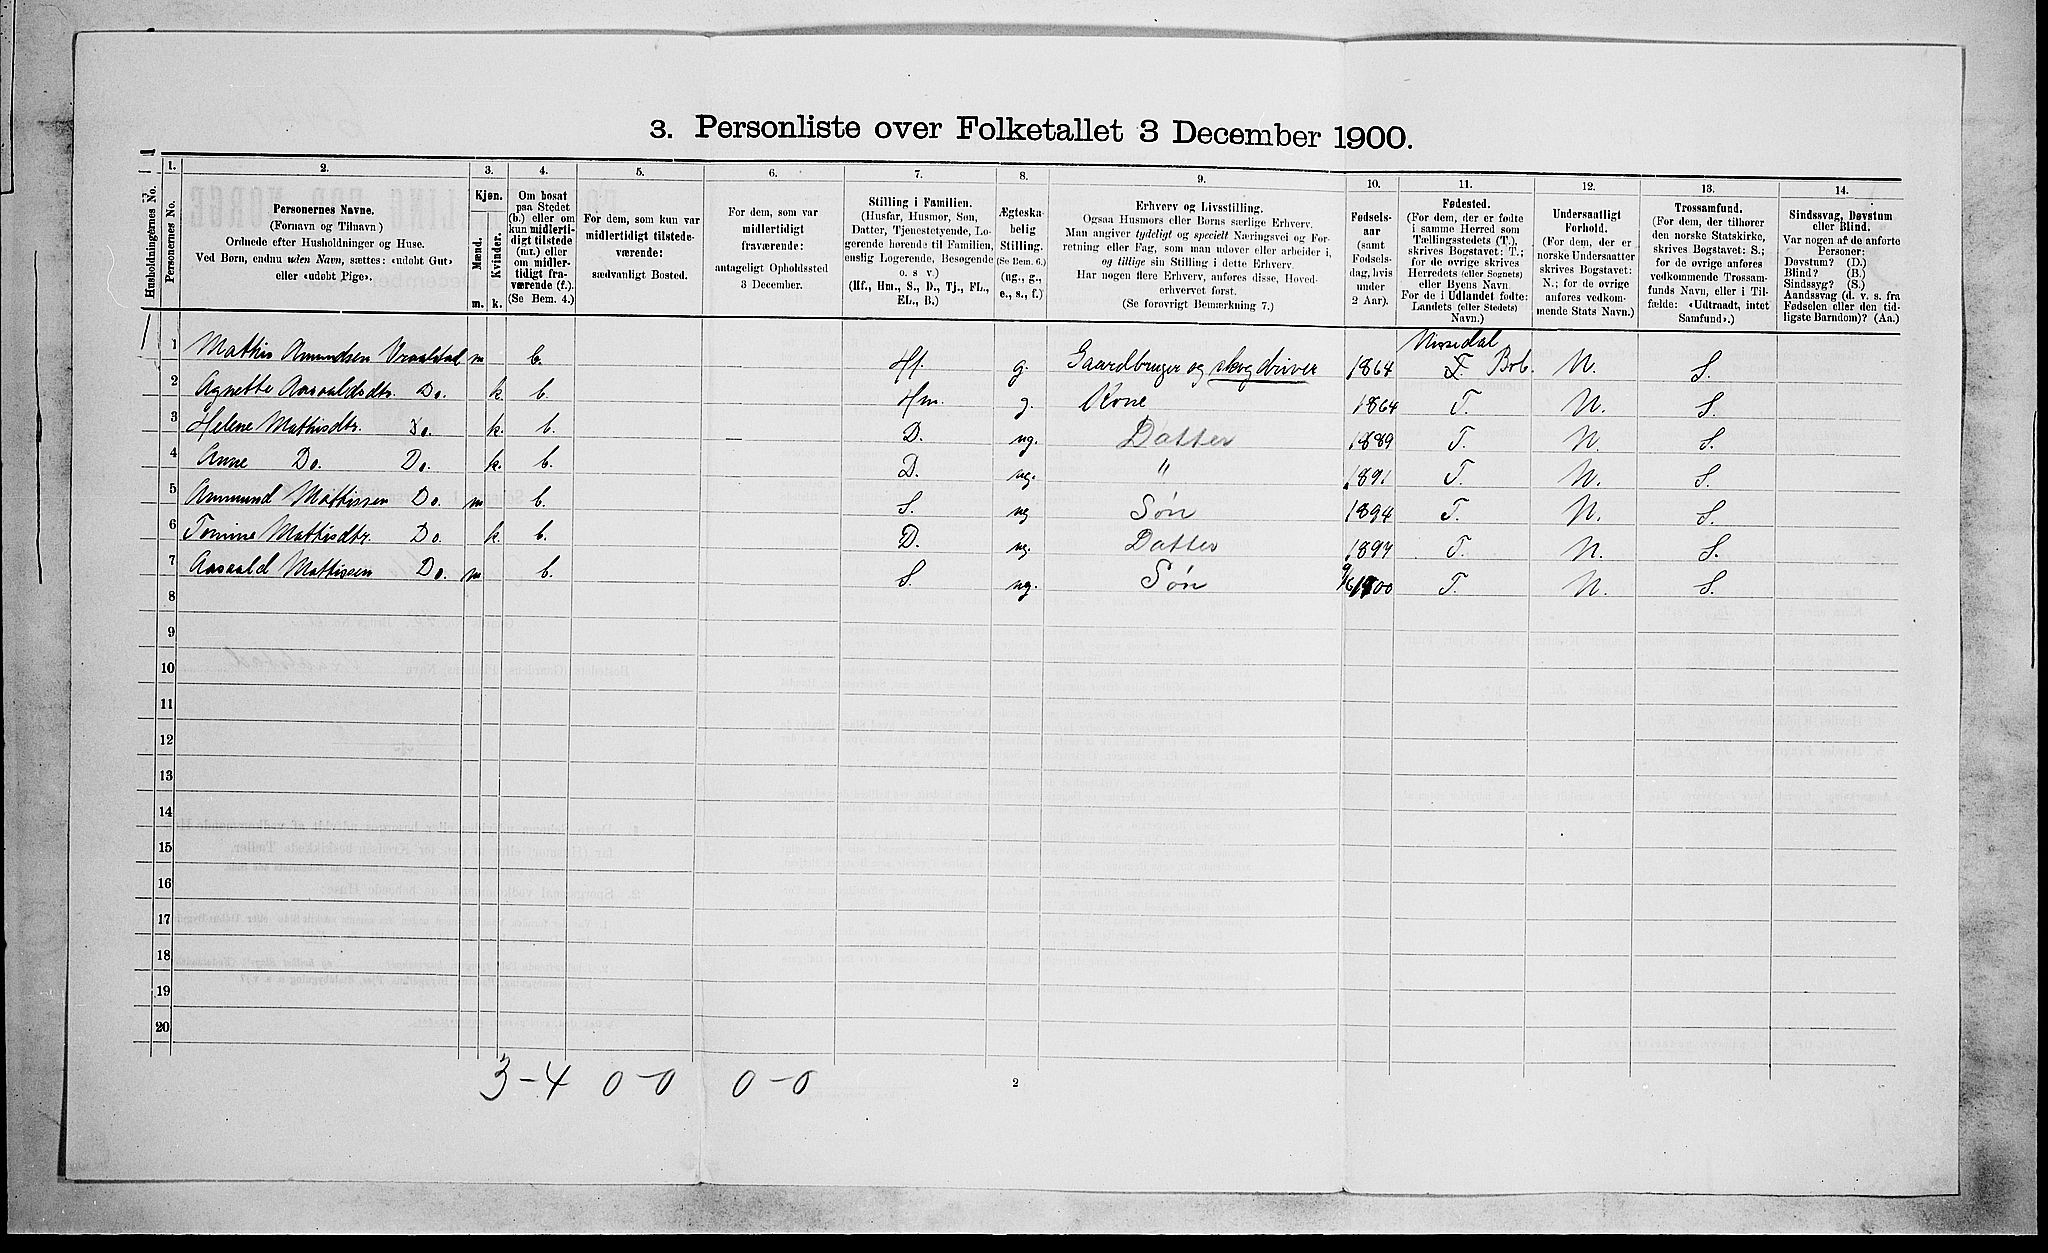 3. Personliste over Folketallet 3 December 1900.
1. 2. 3. 4. 5. 6. 7. 8. 9. 10. 11. 12. 13. 14.
Husholdningernes No.
Personernes No.
Personernes Navne.
(Fornavn og Tilnavn)
Ordnede efter Husholdninger og Huse.
Ved Børn, endnu uden Navn, sættes: «udøbt Gut»
eller «udøbt Pige».
Kjøn.
Mænd.
Kvinder.
m. k.
Om bosat
paa Stedet
(b.) eller om
kun midlerti-
digt tilstede
(mt.) eller
om midler-
tidigt fra-
værende (f.).
(Se Bem. 4.)
For dem, som kun var
midlertidigt tilstede-
værende:
sædvanligt Bosted.
For dem, som var
midlertidigt
fraværende:
antageligt Opholdssted
3 December.
Stilling i Familien.
(Husfar, Husmor, Søn,
Datter, Tjenestetyende, Lo-
gerende hørende til Familien,
enslig Logerende, Besøgende
o. s v.)
(Hf., Hm., S., D., Tj., FL.,
EL., B.)
Ægteska-
belig
Stilling.
(Se Bem. 6.)
(ug., g.,
e., s., f.)
Erhverv og Livsstilling.
Ogsaa Husmors eller Børns særlige Erhverv.
Man angiver tydeligt og specielt Næringsvei og For-
retning eller Fag, som man udøver eller arbeider i,
og tillige sin Stilling i dette Erhverv.
Har nogen flere Erhverv, anføres disse, Hoved-
erhvervet først.
(Se forøvrigt Bemærkning 7.)
Fødsels-
aar
(samt
Fødsels-
dag, hvis
under
2 Aar).
Fødested.
(For dem, der er fødte
i samme Herred som
Tællingsstedets (T.),
skrives Bogstavet: T.;
for de øvrige skrives
Herredets (eller Sognets)
eller Byens Navn.
For de i Udlandet fødte:
Landets (eller Stedets)
Navn.)
Undersaatligt
Forhold.
(For dem, der er
norske Undersaatter
skrives Bogstavet:
N.; for de øvrige
anføres vedkom-
mende Stats Navn.)
Trossamfund.
(For dem, der tilhører
den norske Statskirke,
skrives Bogstavet: S.;
for de øvrige anføres
vedkommende Trossam-
funds Navn, eller i Til-
fælde: «Udtraadt, intet
Samfund».)
Sindssvag, Døvstum
eller Blind.
Var nogen af de anførte
Personer:
Døvstum? (D.)
Blind? (B.)
Sindssyg? (S.)
Aandssvag (d. v. s. fra
Fødselen eller den tid-
ligste Barndom)? (Aa.)
Nissedal
1 1 Mathis Amundsen Vraalstad m b. Hf. g. Gaardbruger og skogdriver 1864 T. Bob. N. S.
2 Agnette Aasvaldsdtr. Do. k. b. Hm. g. Kone 1864 T. N. S.
3 Helene Mathisdtr. Do. k. b. D. ug. Datter 1889 T. N. S.
4 Anne Do. Do. k. b. D. ug. " 1891 T. N. S.
5 Ammund Mathissen Do. m b. S. ug Søn 1894 T. N. S.
6 Tomine Mathisdtr. Do. k. b. D. ug. Datter 1897 T. N. S.
7 Aasvald Mathissen Do. m b. S. ug. Søn 9/6 1900 T. N. S.
8
9
10
11
12
13
14
15
16
17
18
19
20
3-4 0-0 0-0
2